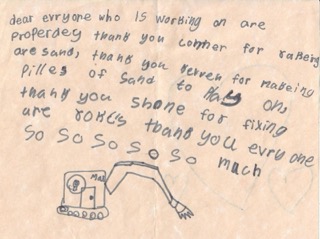 dear evryone who is working on are
properdey thank you conner for rakeing
are sand, thank you kerven for makeing
pilles of sand to play on,
thank you shone for fixing
are rokcs thank you evry one
so so so so so so mach